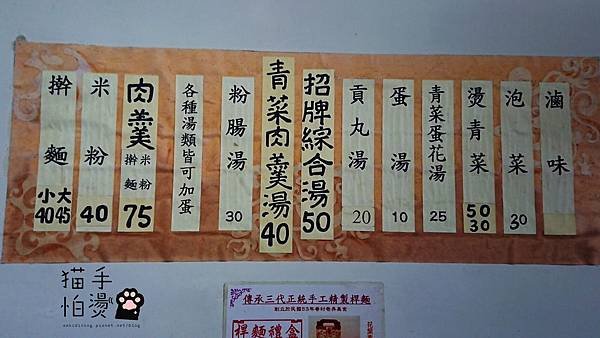 滷味
泡菜 30
燙青菜 50 30
青菜蛋花湯 25
蛋湯 10
貢丸湯 20
招牌綜合湯 50
青菜肉羹湯 40
粉腸湯 30
各種湯類皆可加蛋
肉羹 米粉 擀麵 75
米粉 40
擀麵 大45 小40
貓手
怕燙
傳承三代正統手工精製桿麵
桿麵禮盒